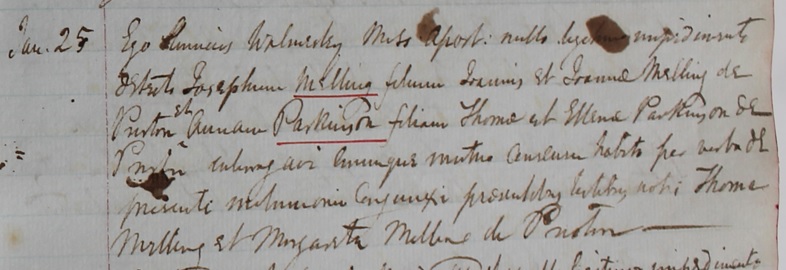 Jan. 25 Ego Walmesley Miss: Apost: nullo legitimo impedimento
detecto Josephum Melling filium Joannis et Joannæ Melling de
Preston et Annam Parkinson filiam Thomæ et Ellenæ Parkinson de
Preston interrogavi eorumque mutuo consensu habito per verba de
præsenti matrimonio conjunxi præsentibus testibus notis Thoma
Melling et Margareta Melling de Preston
legitimo impedimento